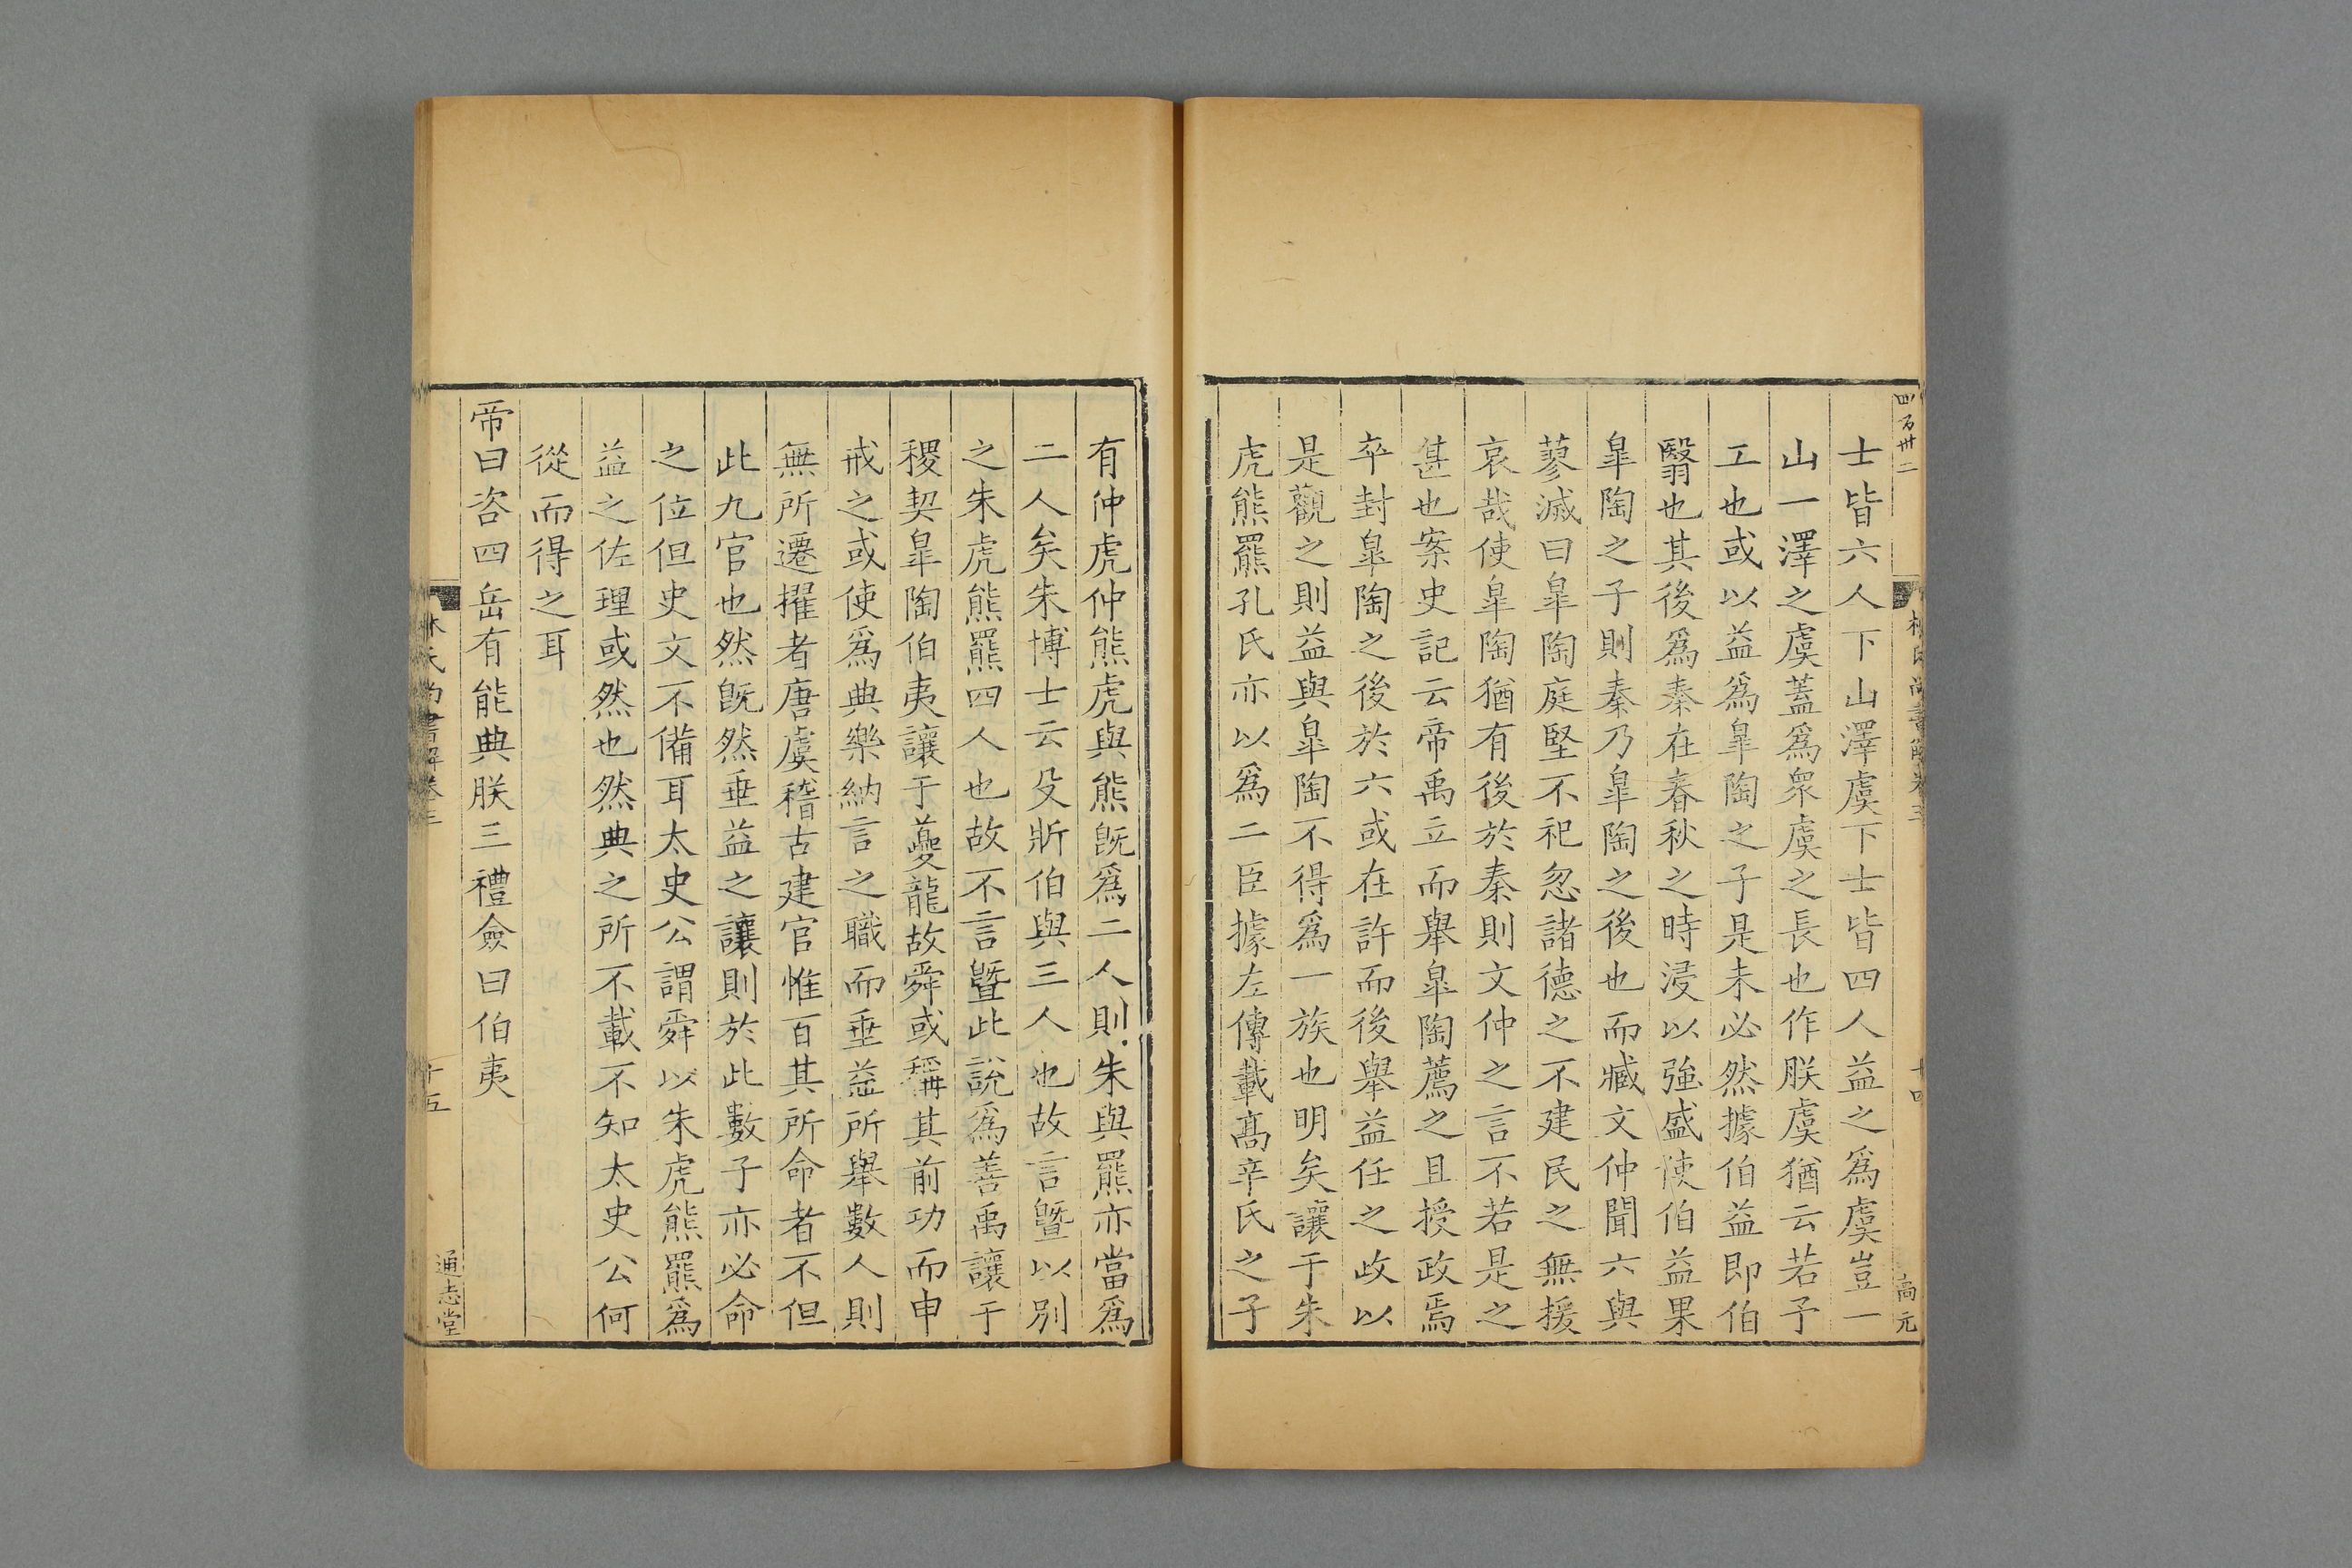 四百卅二
林氏尚書解卷三
十四
高元
士皆六人下山澤虞下士皆四人益之爲虞豈一
山一澤之虞蓋爲衆虞之長也作朕虞猶云若予
工也或以益爲臯陶之子是未必然據伯益即伯
翳也其後爲秦在春秋之時浸以強盛使伯益果
臯陶之子則秦乃臯陶之後也而臧文仲聞六與
蓼滅曰臯陶庭堅不祀忽諸德之不建民之無援
哀哉使臯陶猶有後於秦則文仲之言不若是之
甚也案史記云帝禹立而舉臯陶薦之且授政焉
卒封臯陶之後於六或在許而後舉益任之政以
是觀之則益與臯陶不得爲一族也明矣讓于朱
虎熊羆孔氏亦以爲二臣據左傳載高辛氏之子
有仲虎仲熊虎與熊旣爲二人則朱與羆亦當爲
二人矣朱博士云殳斨伯與三人也故言曁以別
之朱虎熊羆四人也故不言曁此說爲善禹讓于
稷契臯陶伯夷讓于夔龍故舜或稱其前功而申
戒之或使爲典樂納言之職而垂益所舉數人則
無所遷擢者唐虞稽古建官惟百其所命者不但
此九官也然旣然垂益之讓則於此數子亦必命
之位但史文不備耳太史公謂舜以朱虎熊羆爲
益之佐理或然也然典之所不載不知太史公何
從而得之耳
帝曰咨四岳有能典朕三禮僉曰伯夷
林氏尚書解卷三
十五
通志堂